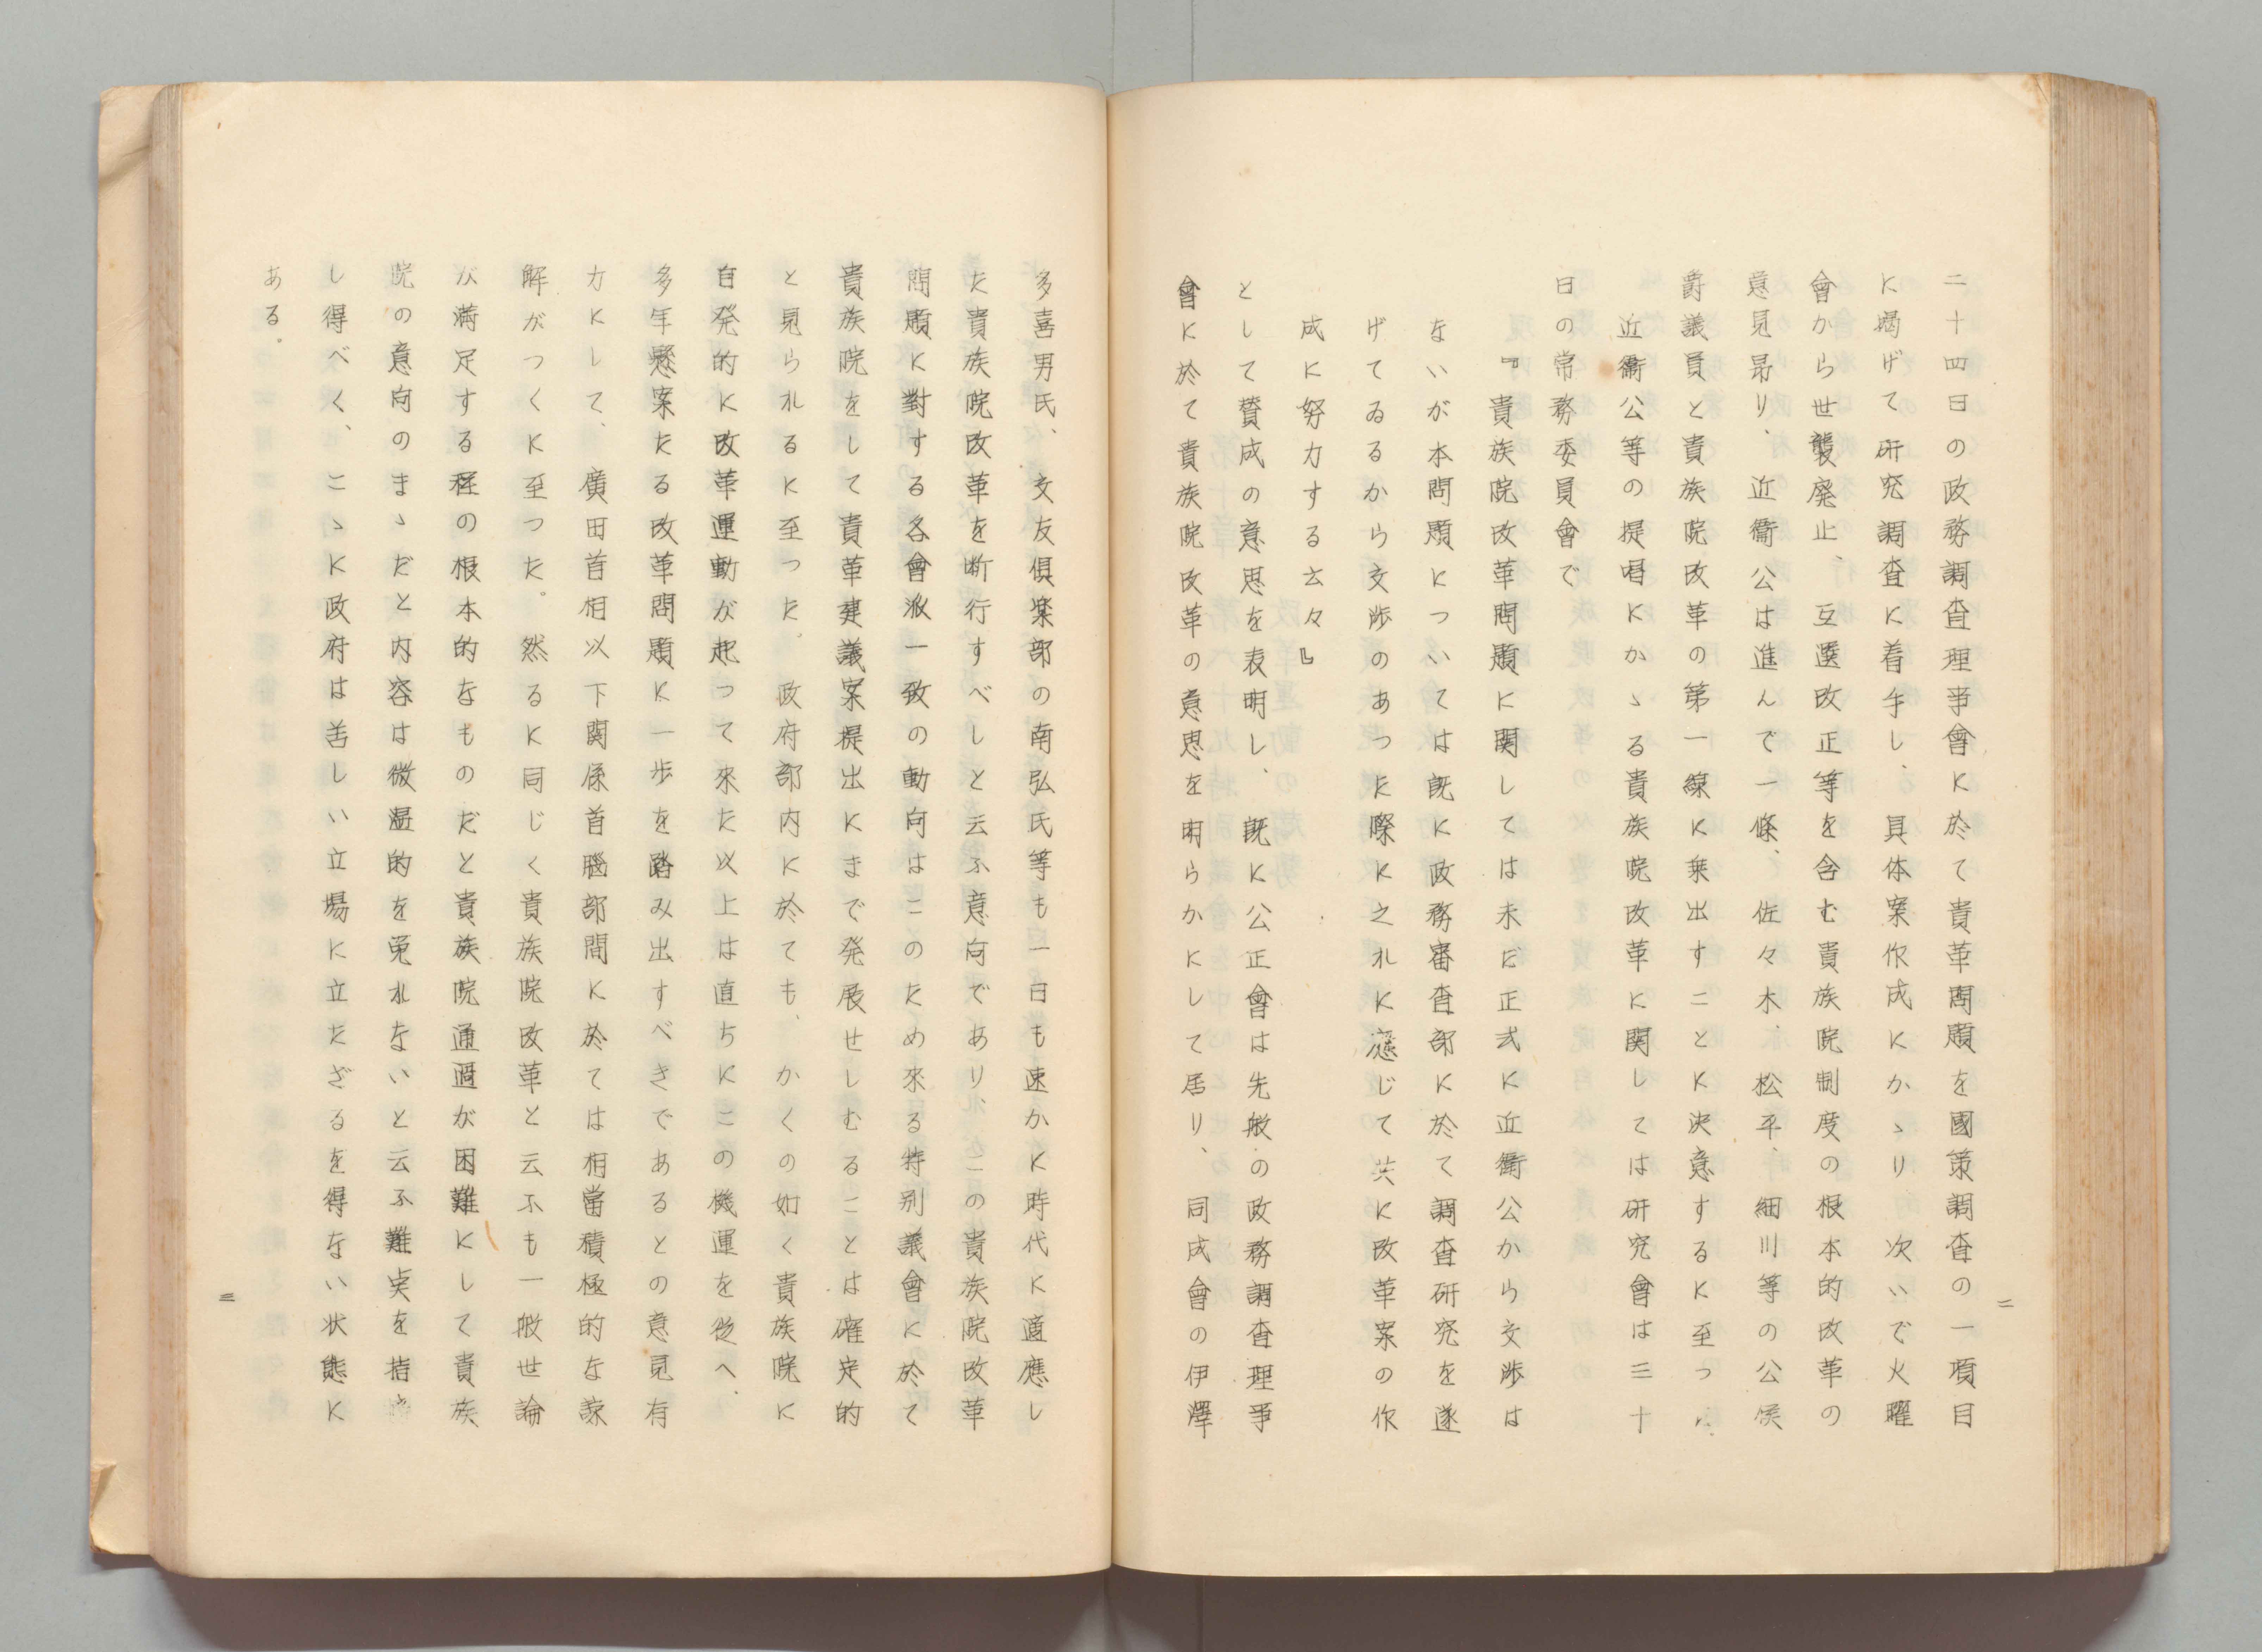 二
二十四日の政務調査理事會に於て貴革問題を國策調査の一項目
に揭げて研究調査に着手し、具体案作成にかゝり　次いで火曜
會から世襲廃止、互選改正等を含む貴族院制度の根本的改革の
意見昻り、近衞公は進んで一條、佐々木、松平、細川等の公侯
爵議員と貴族院改革の第一線に乗出すことに決意するに至つた.
近衞公等の提唱にかゝる貴族院改革に関しては研究會は三十
日の常務委員會で
『貴族院改革問題に関しては未だ正式に近衞公から交渉は
ないが本問題については既に政務審査部に於て調査研究を遂
げてゐるから交渉のあつた際に之れに應じて共に改革案の作
成に努力する云々』
として賛成の意思を表明し、既に公正會は先般の政務調査理事
會に於て貴族院改革の意思を明らかにして居り、同成會の伊澤
多喜男氏、交友倶楽部の南弘氏等も一日も速かに時代に適應し
た貴族院改革を断行すべしと云ふ意向であり、この貴族院改革
問題に對する各會派一致の動向はこのため來る特别議會に於て
貴族院をして貴革建議案提出にまで発展せしむることは確定的
と見られるに至つた。政府部内に於ても、かくの如く貴族院に
自発的に改革運動が起つて來た以上は直ちにこの機運を從へ、
多年懸案たる改革問題に一歩を踏み出すべきであるとの意見有
力にして、廣田首相以下関係首腦部間に於ては相當積極的な諒
解がつくに至つた。然るに同じく貴族院改革と云ふも一般世論
が満足する程の根本的なものだと貴族院通過が困難にして貴族
院の意向のまゝだと内容は微温的を免れないと云ふ難点を指摘
し得べく、こゝに政府は苦しい立場に立たざるを得ない状態に
ある。
三